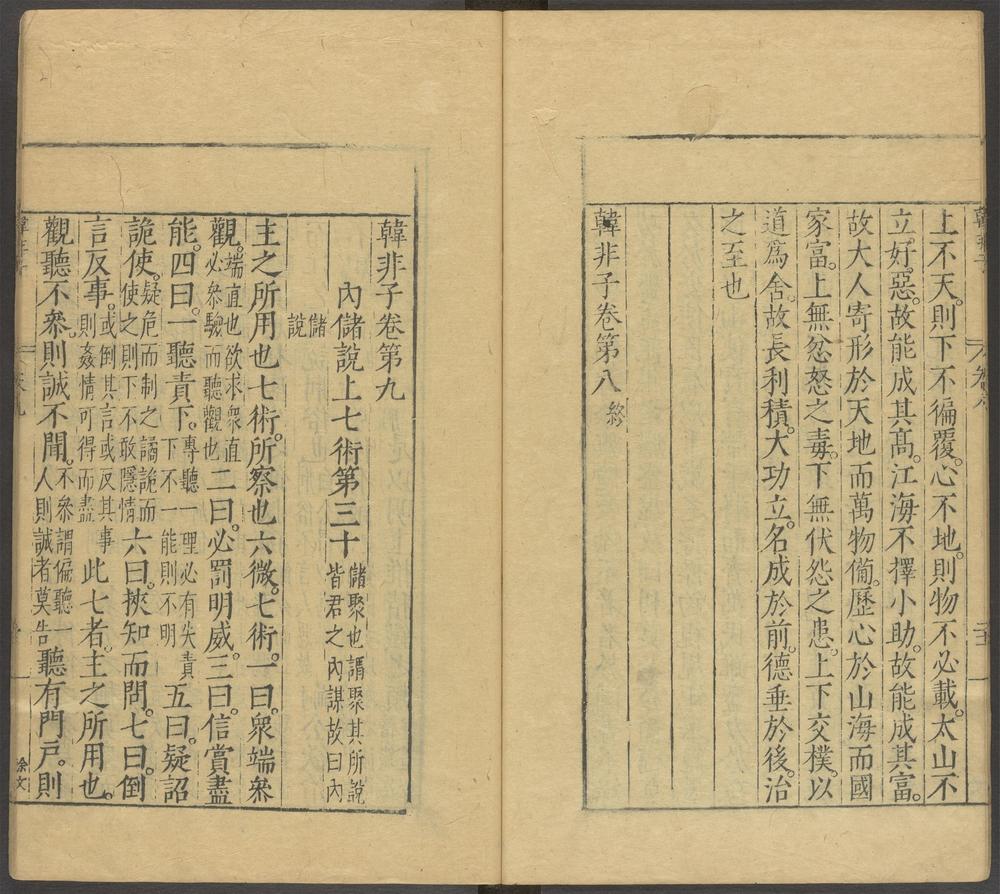 上不天。則下不徧覆。心不地。則物不必載。太山不
立。好。惡。故能成其髙。江海不擇小助。故能成其富。
故大人寄形於天地而萬物備。歷心於山海而國
家富。上無忿怒之毒。下無伏怨之患。上下交樸。以
道爲舍。故長利積。大功立。名成於前。德垂於後。治
之至也
韓非子卷第八 終
韓非子卷第九
內儲說上七術第三十
儲聚也謂聚其所說
皆君之內謀故曰內
儲
說
主之所用也七術。所察也六微。七術。一曰。衆端叅
觀。
端直也欲求衆直
必叅驗而聽觀也
二曰。必罰明威。三曰。信賞盡
能。四曰。一聽責下。
專聽一理必有失責
下不一能則不明
五曰。疑詔
詭使。
疑危而制之譎詭而
使之則下不敢隱情
六曰。挾知而問。七曰。倒
言反事。
或倒其言或反其事
則姦情可得而盡
此七者。主之所用也。
觀聽不叅。則誠不聞。
不叅謂偏聽一
人則誠者莫告
聽有門戸。則
徐文